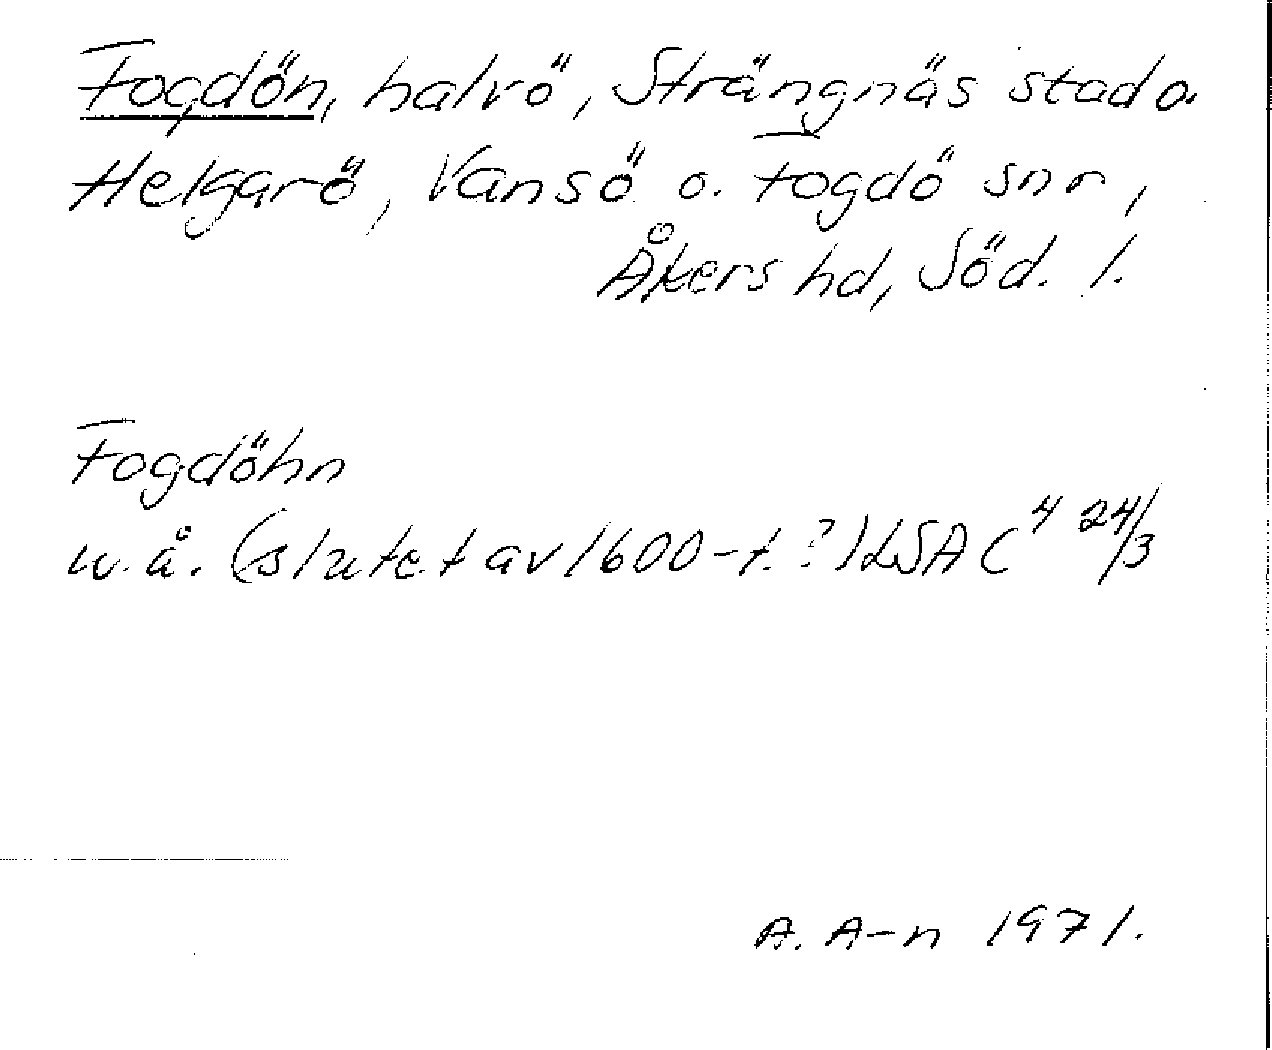 Fogdön, halvö, Strängnäs stad o.
Helgarö, Vansö o. Fogdö snr,
Åkers hd, Söd. l.
Fogdöhn
u. å. (slutet av 1600-t. ?) LSA C⁴ 24/3
A. A-n 1971.